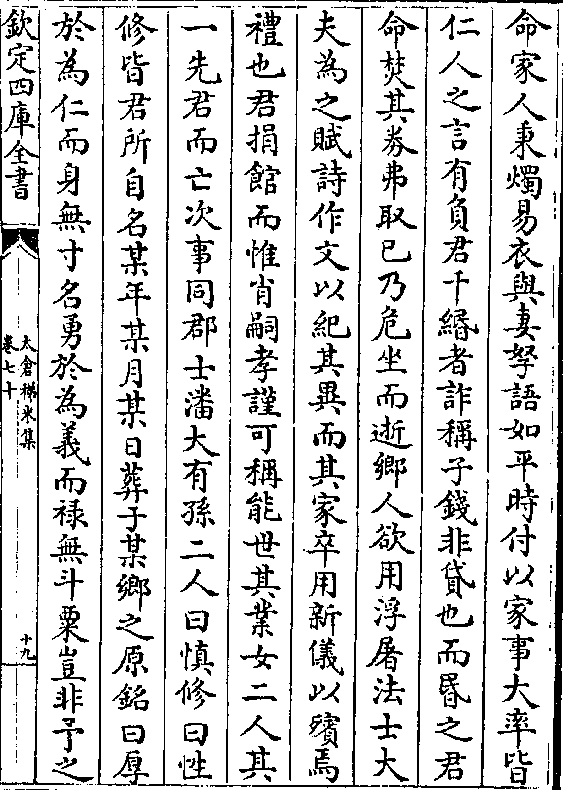 命家人秉燭易衣與妻孥語如平時付以家事大率皆
仁人之言有負君千緡者詐稱子錢非貸也而昬之君
命焚其券弗取已乃危坐而逝鄉人欲用浮屠法士大
夫為之賦詩作文以紀其異而其家卒用新儀以殯焉
禮也君捐館而惟肖嗣孝謹可稱能世其業女二人其
一先君而亡次事同郡士潘大有孫二人曰慎修曰性
修皆君所自名某年某月某日葬于某鄉之原銘曰厚
於為仁而身無寸名勇於為義而祿無斗粟豈非予之
欽定四庫全書
太倉稊米集
卷七十
十九